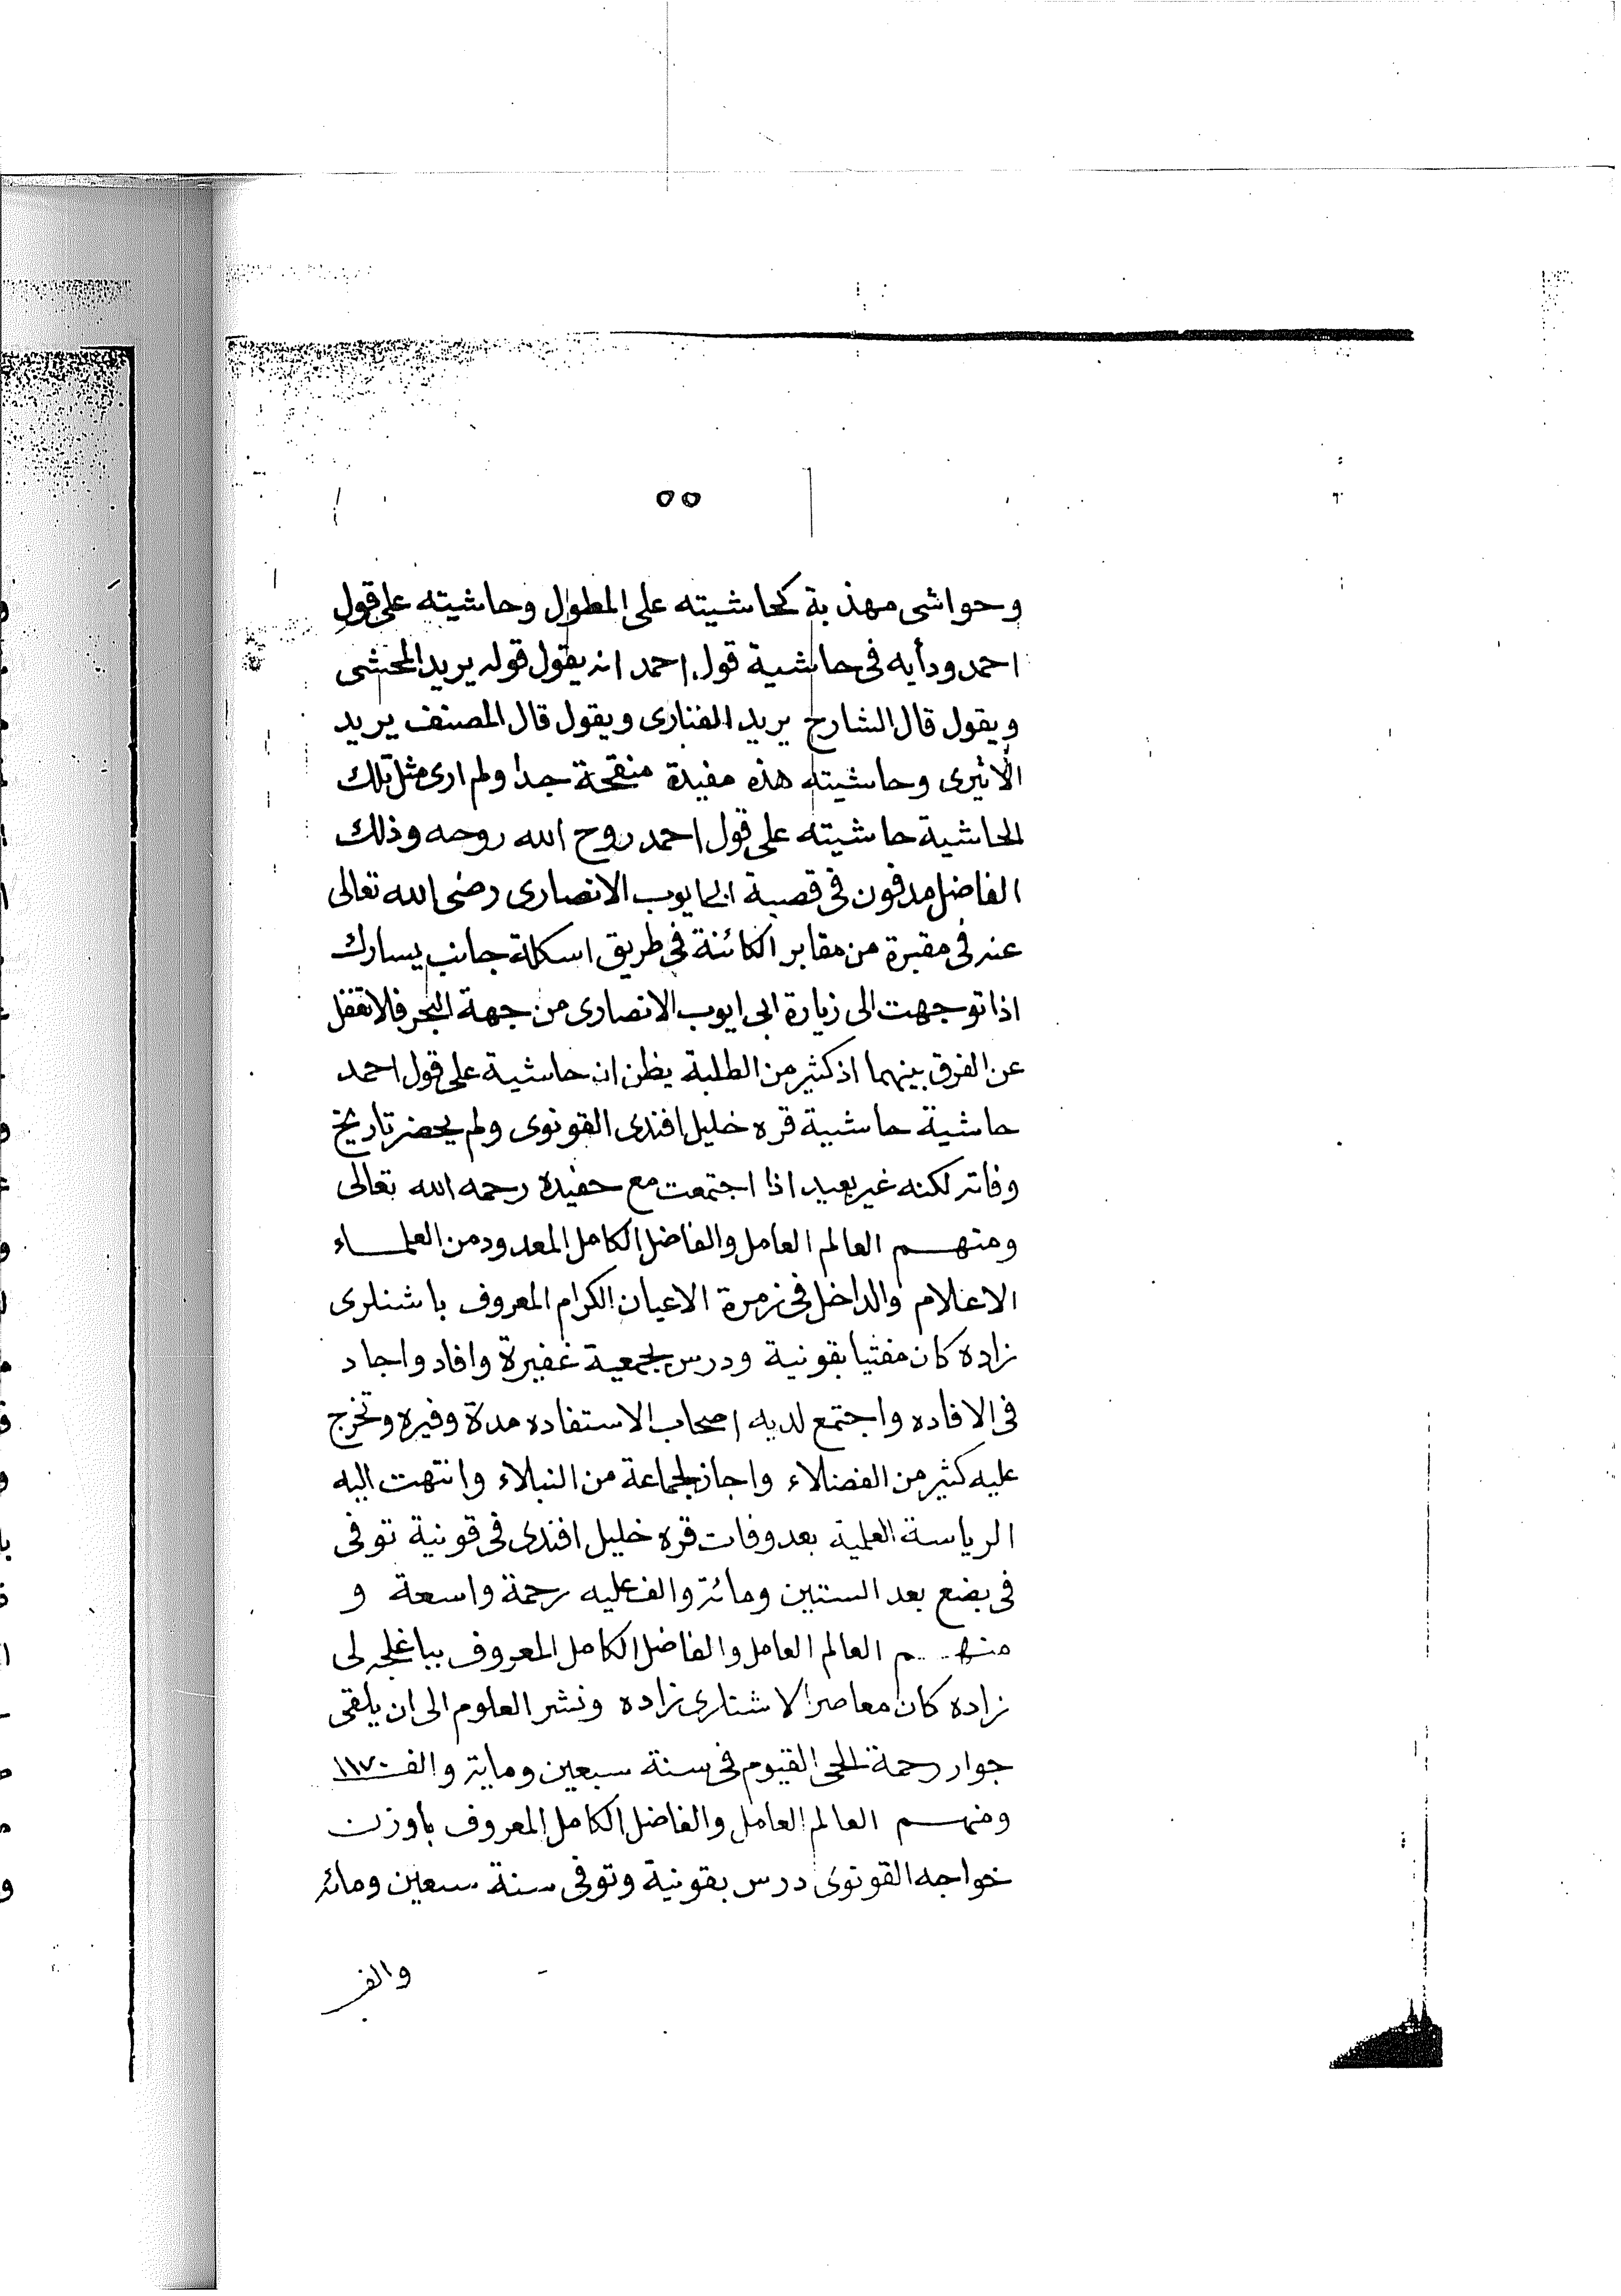 ٥٥
وحواشى مهذبة كحاشيته على المطول وحاشيته على قول
احمد ودأبه فى حاشية قول احمد انه يقول قوله يريد المحشى
ويقول قال الشارح يريد الفنارى ويقول قال المصنف يريد
الأثيرى وحاشيته هذه مفيدة منقحة جدا ولم ارى مثل تلك
الحاشية حاشيته على قول احمد روح الله روحه وذلك
الفاضل مدفون فى قصبة ابى ايوب الانصارى رضى الله تعالى
عنه فى مقبرة من مقابر الكائنة فى طريق اسكلة جانب يسارك
اذا توجهت الى زيارة ابى ايوب الانصارى من جهة البحر فلا تغفل
عن الفرق بينهما اذ كثير من الطلبة يظن ان حاشية على قول احمد
حاشية حاشية قره خليل افندى القونوى ولم يحضر تاريخ
وفاته لكنه غير بعيد اذا اجتمعت مع حفيده رحمه الله تعالى
ومنهم العالم العامل والفاضل الكامل المعدود من العلماء
الاعلام والداخل فى زمرة الاعيان الكرام المعروف باشنلرى
زاده كان مفتيا بقونية ودرس لجمعية غفيرة وافاد واجاد
فى الافاده واجتمع لديه اصحاب الاستفاده مدة وفيره وتخرج
عليه كثير من الفضلاء واجاز لجماعة من النبلاء وانتهت اليه
الرياسة العلمية بعد وفات قره خليل افندى فى قونية توفى
فى بضع بعد الستين ومائة والف عليه رحمة واسعة و
منهم العالم العامل والفاضل الكامل المعروف بباغلجه لى
زاده كان معاصرا لاشنلرى زاده ونشر العلوم الى ان يلقى
جوار رحمة الحى القيوم فى سنة سبعين وماية والف ١١٧٠
ومنهم العالم العامل والفاضل الكامل المعروف بأوزن
خواجه القونوى درس بقونية وتوفى سنة سبعين ومائة
والف